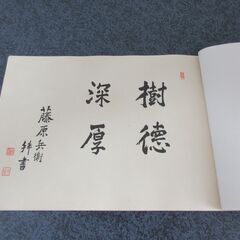 樹德
深厚
藤原兵衛
拜書